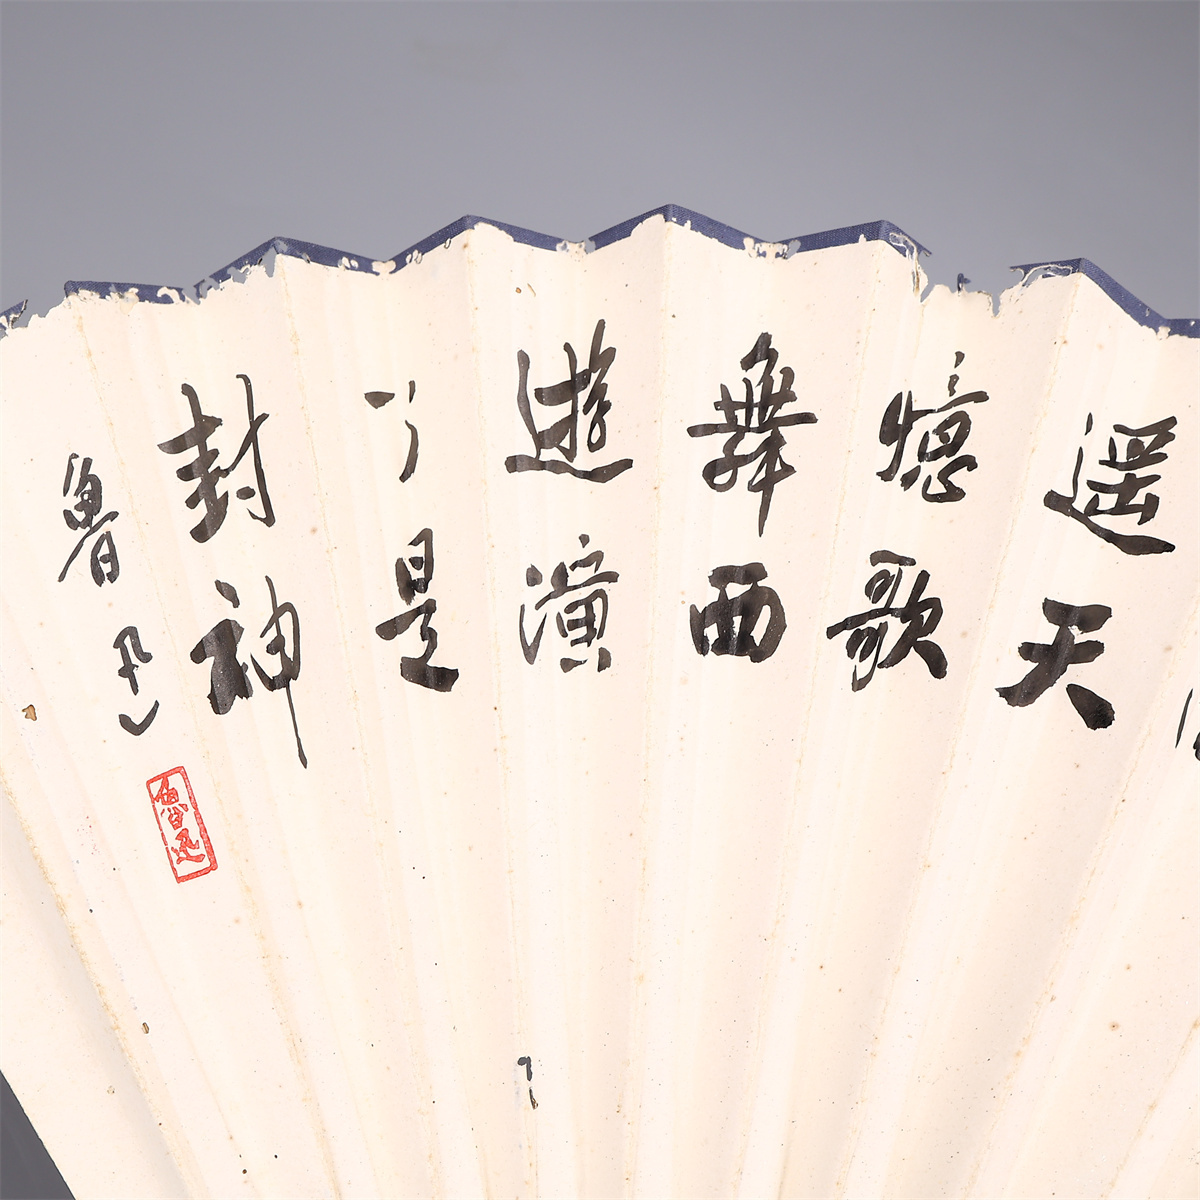 遥天
憶歌
舞西
遊演
了是
封神
魯迅
魯迅